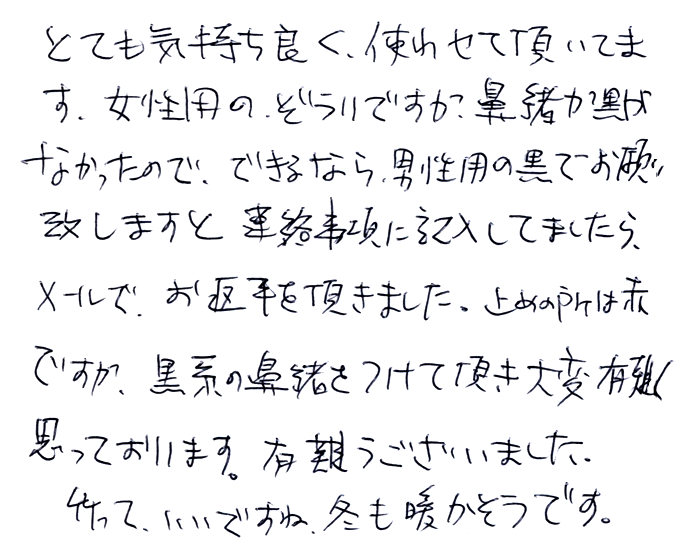 とても気持ち良く、使わせて頂いてま
す。女性用の、ぞうりですが、鼻緒が黒が
なかったので、できるなら、男性用の黒でお願い
致しますと 連絡事項に記入してましたら、
メールで、お返事を頂きました。止めの所は赤
ですが、黒系の鼻緒をつけて頂き大変有難く
思っております。有難うございました。
竹って、いいですね、冬も暖かそうです。